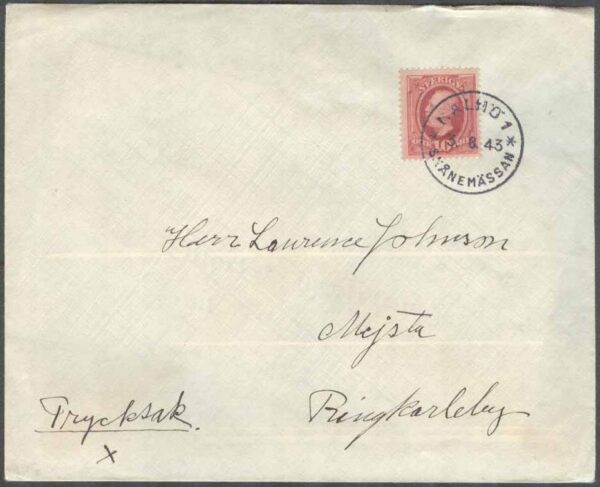 SVERIGE
MALMÖ 1
8.43
SKÅNEMÄSSAN
Herr Laurence Johnson
Mejsta
Ringkarleby
Trycksak.
x